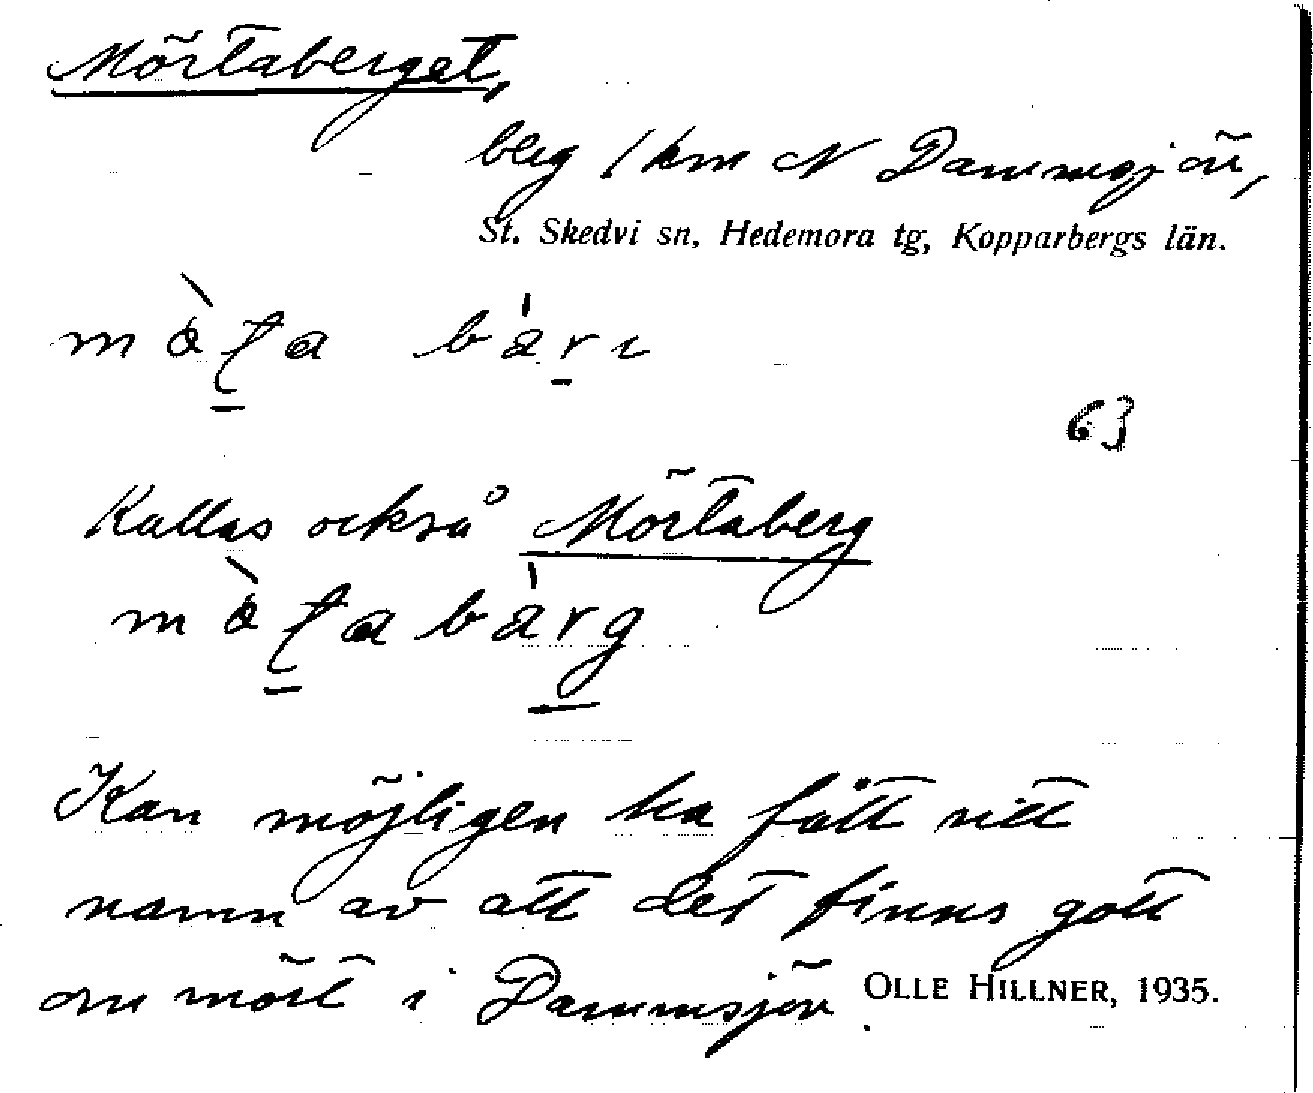 Mörtaberget,
berg 1 km N Dammsjön,
St. Skedvi sn, Hedemora tg, Kopparbergs län.
63
Kallas också Mörtaberg
Kan möjligen ha fått sitt
namn av att det finns gott
om mört i Dammsjön
OLLE HILLNER, 1935.